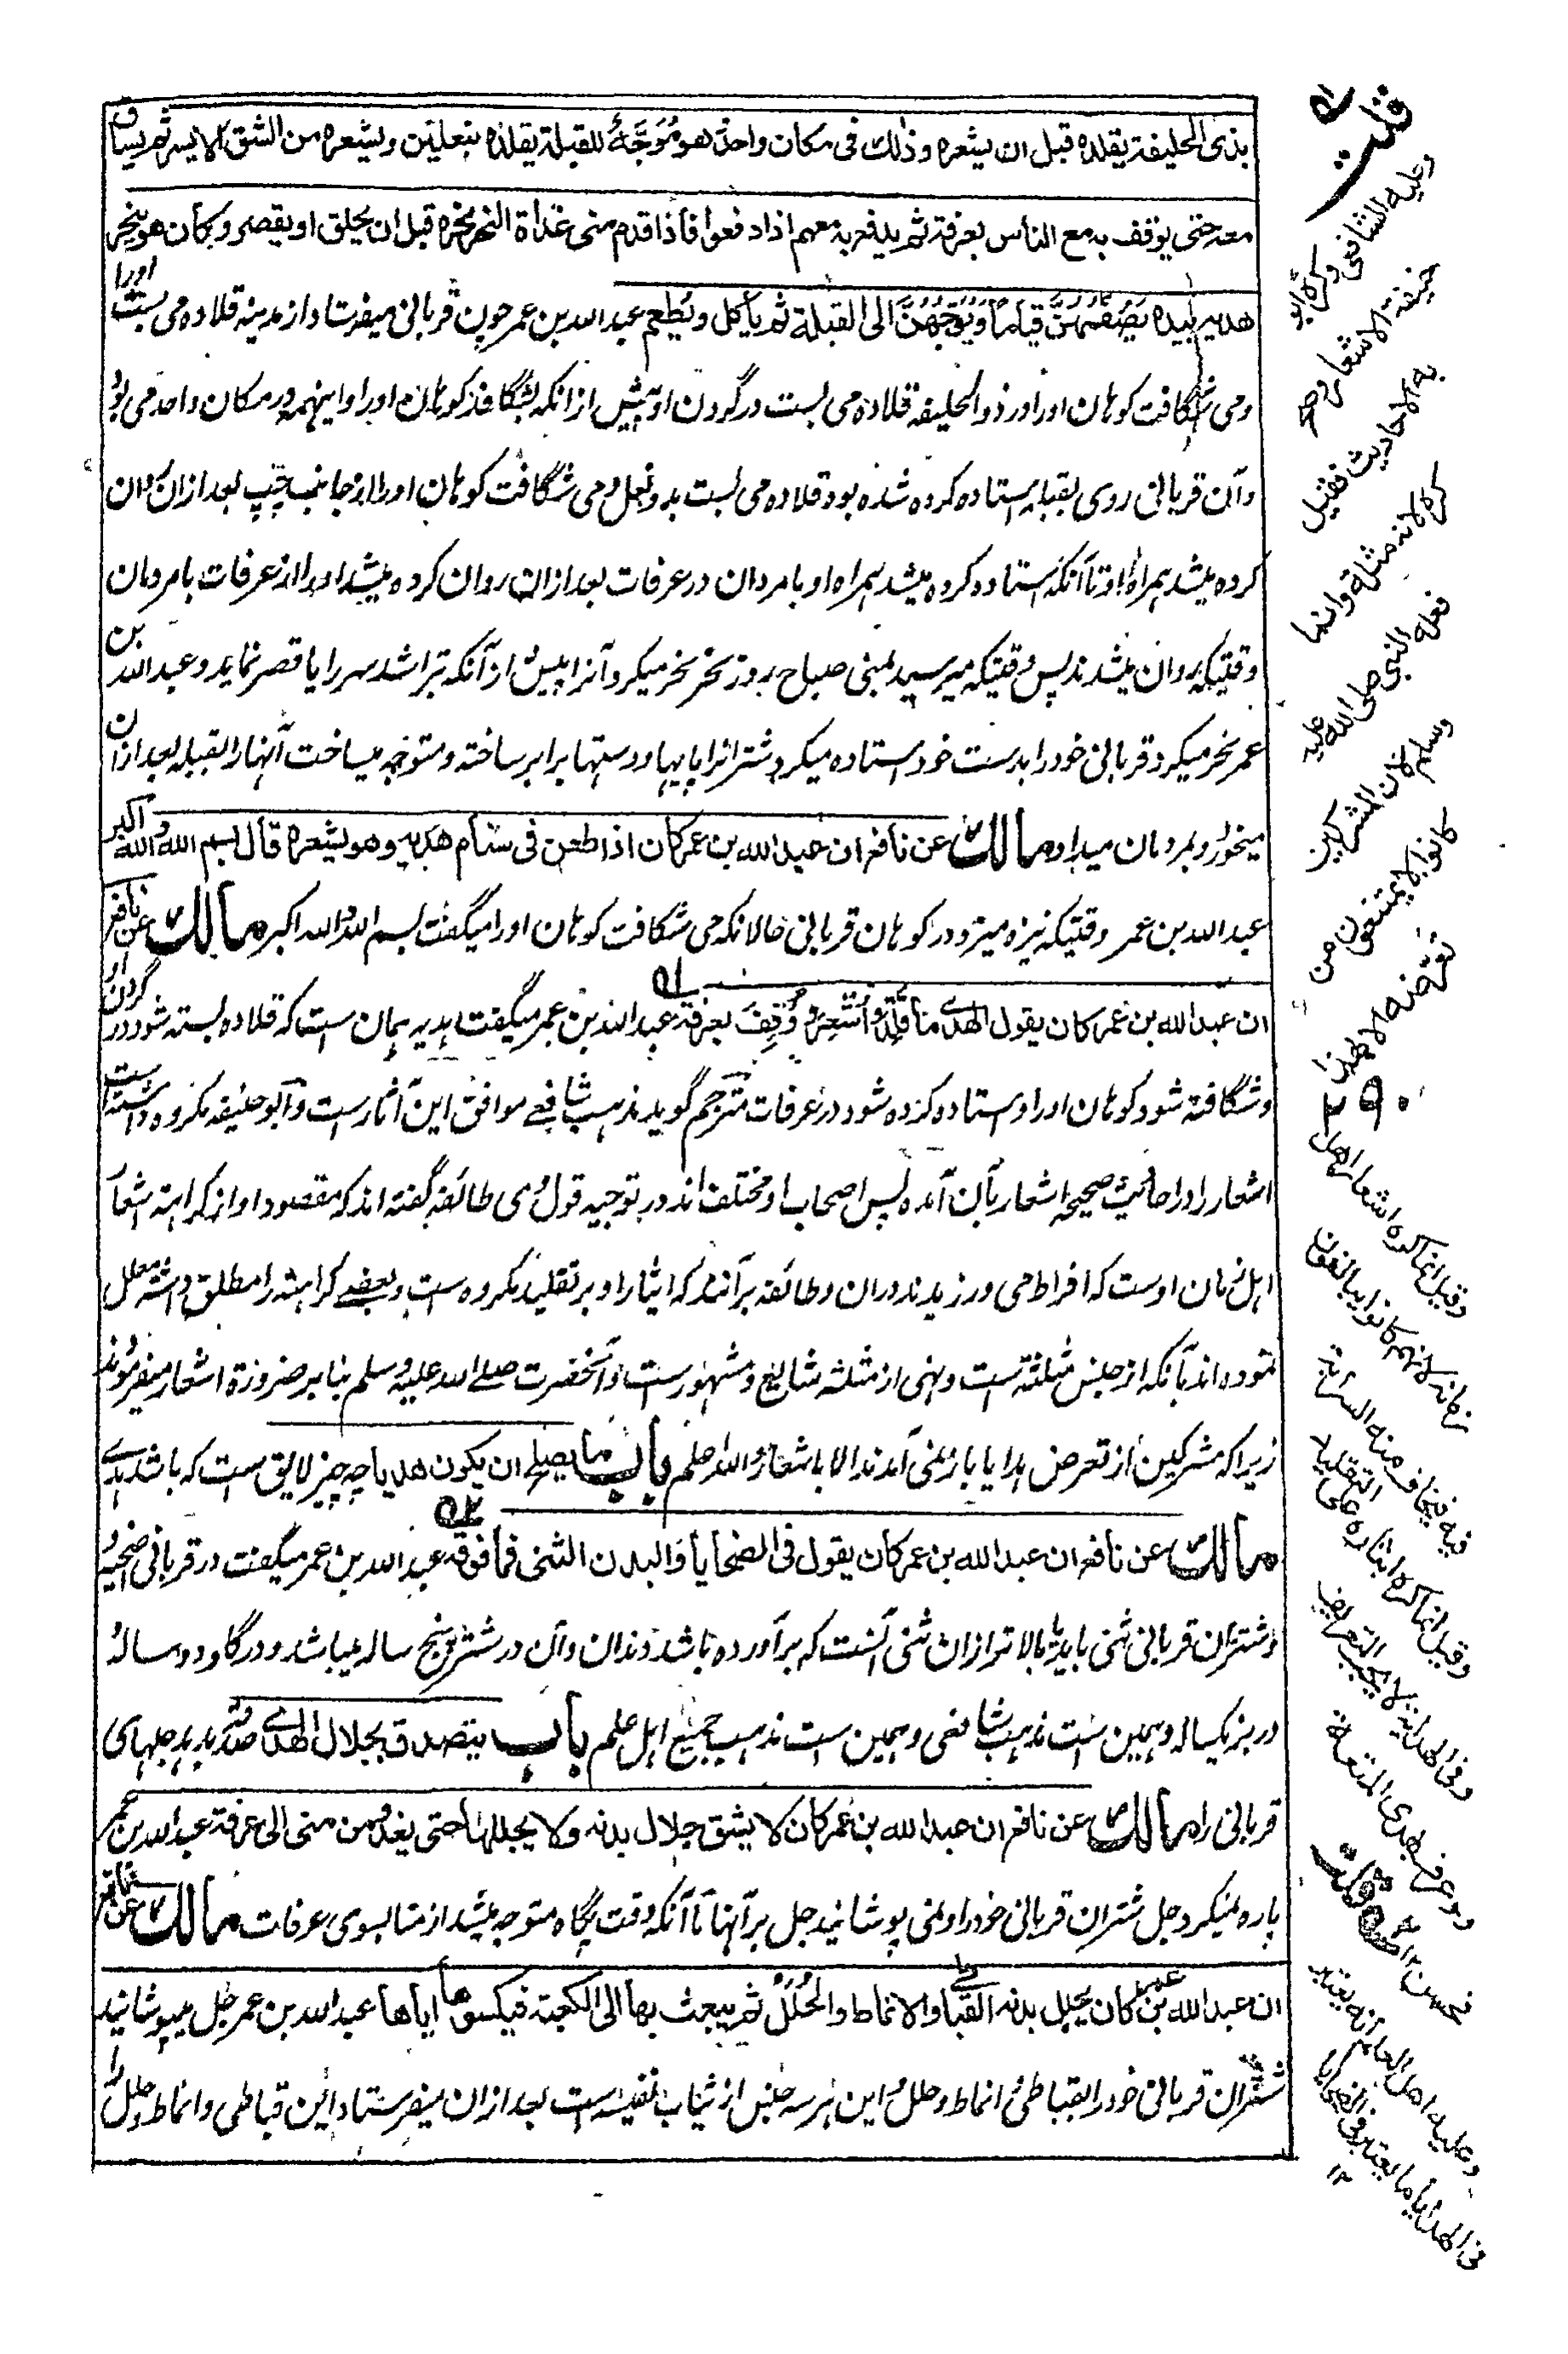 بذى الحليفة يقلده قبل ان يشعره وذلك فى مكان واحد هو مُوَجَّهٌ للقبلة يقلده بنعلين ويشعره من الشق الايسر ثم يساق
معه حتى يوقف به مع الناس بعرفة ثم يدفع به معهم اذا دفعوا فاذا قدم منى غداة النحر نحره قبل ان يحلق او يقصر وكان هو ينحر
هديه بيده يَصُفُّهُنَّ قياماً وَيُوَجِّهُهُنَّ الى القبلة ثم يأكل ويُطعِم عبد الله بن عمر چون قربانی میفرستاد از مدینه قلاده می بست اورا
ومی شگافت کوہان اورا در ذو الحلیفه قلاده می بست در گردن او پیش از انکه بشگافد کوہان اورا و اینهمه در مکان واحد می بود
وآن قربانی روی بقبله استاده کرده شده بود قلاده می بست بدو نعل و می شگافت کوہان اورا از جانب چپ بعد ازان روان
کرده میشد ہمراه او تا آنکه استاده کرده میشد ہمراه او با مردمان در عرفات بعد ازان روان کرده میشد اورا از عرفات با مردمان
وقتیکه روان میشدند پس وقتیکه میرسید بمنی صباح روز نحر نحر میکرد آنرا پیش از آنکه بتراشد سر را یا قصر نماید و عبد الله بن
عمر نحر میکرد قربانی خود را بدست خود استاده میکرد شتران را پایها و دستها برابر ساخته و متوجه میساخت آنها را بقبله بعد ازان
میخورد و بمردمان میداد مالك عن نافع ان عبد الله بن عمر كان اذا طعن فى سنام هديه وهو يشعره قال بسم الله والله اكبر
عبد الله بن عمر وقتیکه نیزه میزد در کوہان قربانی حالانکه می شگافت کوہان اورا میگفت بسم الله والله اکبر مالك عن نافع
ان عبد الله بن عمر كان يقول الهدي ما قُلِّدَ و اُشْعِرَ و وُقِفَ بعرفة عبد الله بن عمر میگفت ہدیه ہمان ست که قلاده بسته شود در گردن او
وشگافته شود کوہان اورا و استاده کرده شود در عرفات مترجم گوید مذہب شافعی موافق این آثار ست و ابو حنیفه مکروه داشته است
اشعار را و احادیث صحیحه اشعار بآن آمده پس اصحاب او مختلف اند در توجیه قول وی طائفه گفته اند که مقصود او از کراہته اشعار
اہل زمان اوست که افراط می ورزیدند دران و طائفه برآنند که ایثار او بر تقلید مکروه ست و بعضے کراہته را مطلق داشته معلل
نموده اند بآنکه از جنس مثله ست و نہی از مثله شایع و مشہور ست و آنحضرت صلے الله علیه وسلم بنا بر ضرورة اشعار میفرمودند
زیرا که مشرکین از تعرض ہدایا باز نمی آمدند الا باشعار والله اعلم باب ما يصلح ان يكون هديا چه چیز لایق ست که باشد ہدے
۵۲
مالك عن نافع ان عبد الله بن عمر كان يقول فى الضحايا والبدن الثنى فما فوقه عبد الله بن عمر میگفت در قربانی اضحیه و
شتران قربانی ثنی باید یا بالاتر ازان ثنی آنست که برآورده باشد دندان و آن در شتر پنج ساله میباشد و در گاو دو ساله و
در بز یکساله و ہمین ست مذہب شافعی و ہمین ست مذہب جمیع اہل علم باب يتصدق بجلال الهدي صدقه بدہد جلهای
قربانی را مالك عن نافع ان عبد الله بن عمر كان لا يشق جلال بدنه ولا يجللها حتى يغدو من منى الى عرفة عبد الله بن عمر
پاره نمیکرد جل شتران قربانی خود را و نمی پوشانید جل بر آنها تا آنکه وقت پگاه متوجه میشد از منا بسوی عرفات مالك عن نافع
ان عبد الله بن عمر كان يجلل بدنه القباطي والانماط والحُلَل ثم يبعث بها الى الكعبة فيكسوها اياها عبد الله بن عمر جل میپوشانید
شتران قربانی خود را بقباطی و انماط و حلل و این ہر سه جنس از ثیاب نفیسه است بعد ازان میفرستاد این قباطی و انماط و حلل را
۵۱
قلت
وعليه الشافعى وكره ابو
حنيفة الاشعار وصح
به الاحاديث فقيل
كره لانه مثلة وانما
فعله النبى صلى الله عليه
وسلم لان المشركين
كانوا لا يمتنعون من
تعرضه الا بهذا
وقيل انما كره اشعار اهل
زمانه لانهم كانوا يبالغون
فيه فيخاف منه السراية
وقيل انما كره ايثاره على التقليد
وفى الهداية لا يجب التعريف
ولو عرف بهدى المتعة
فحسن ۱۲ ۵۲ قلت
وعليه اهل العلم انه يعتبر
فى الهدايا ما يعتبر فى الضحايا
۱۲